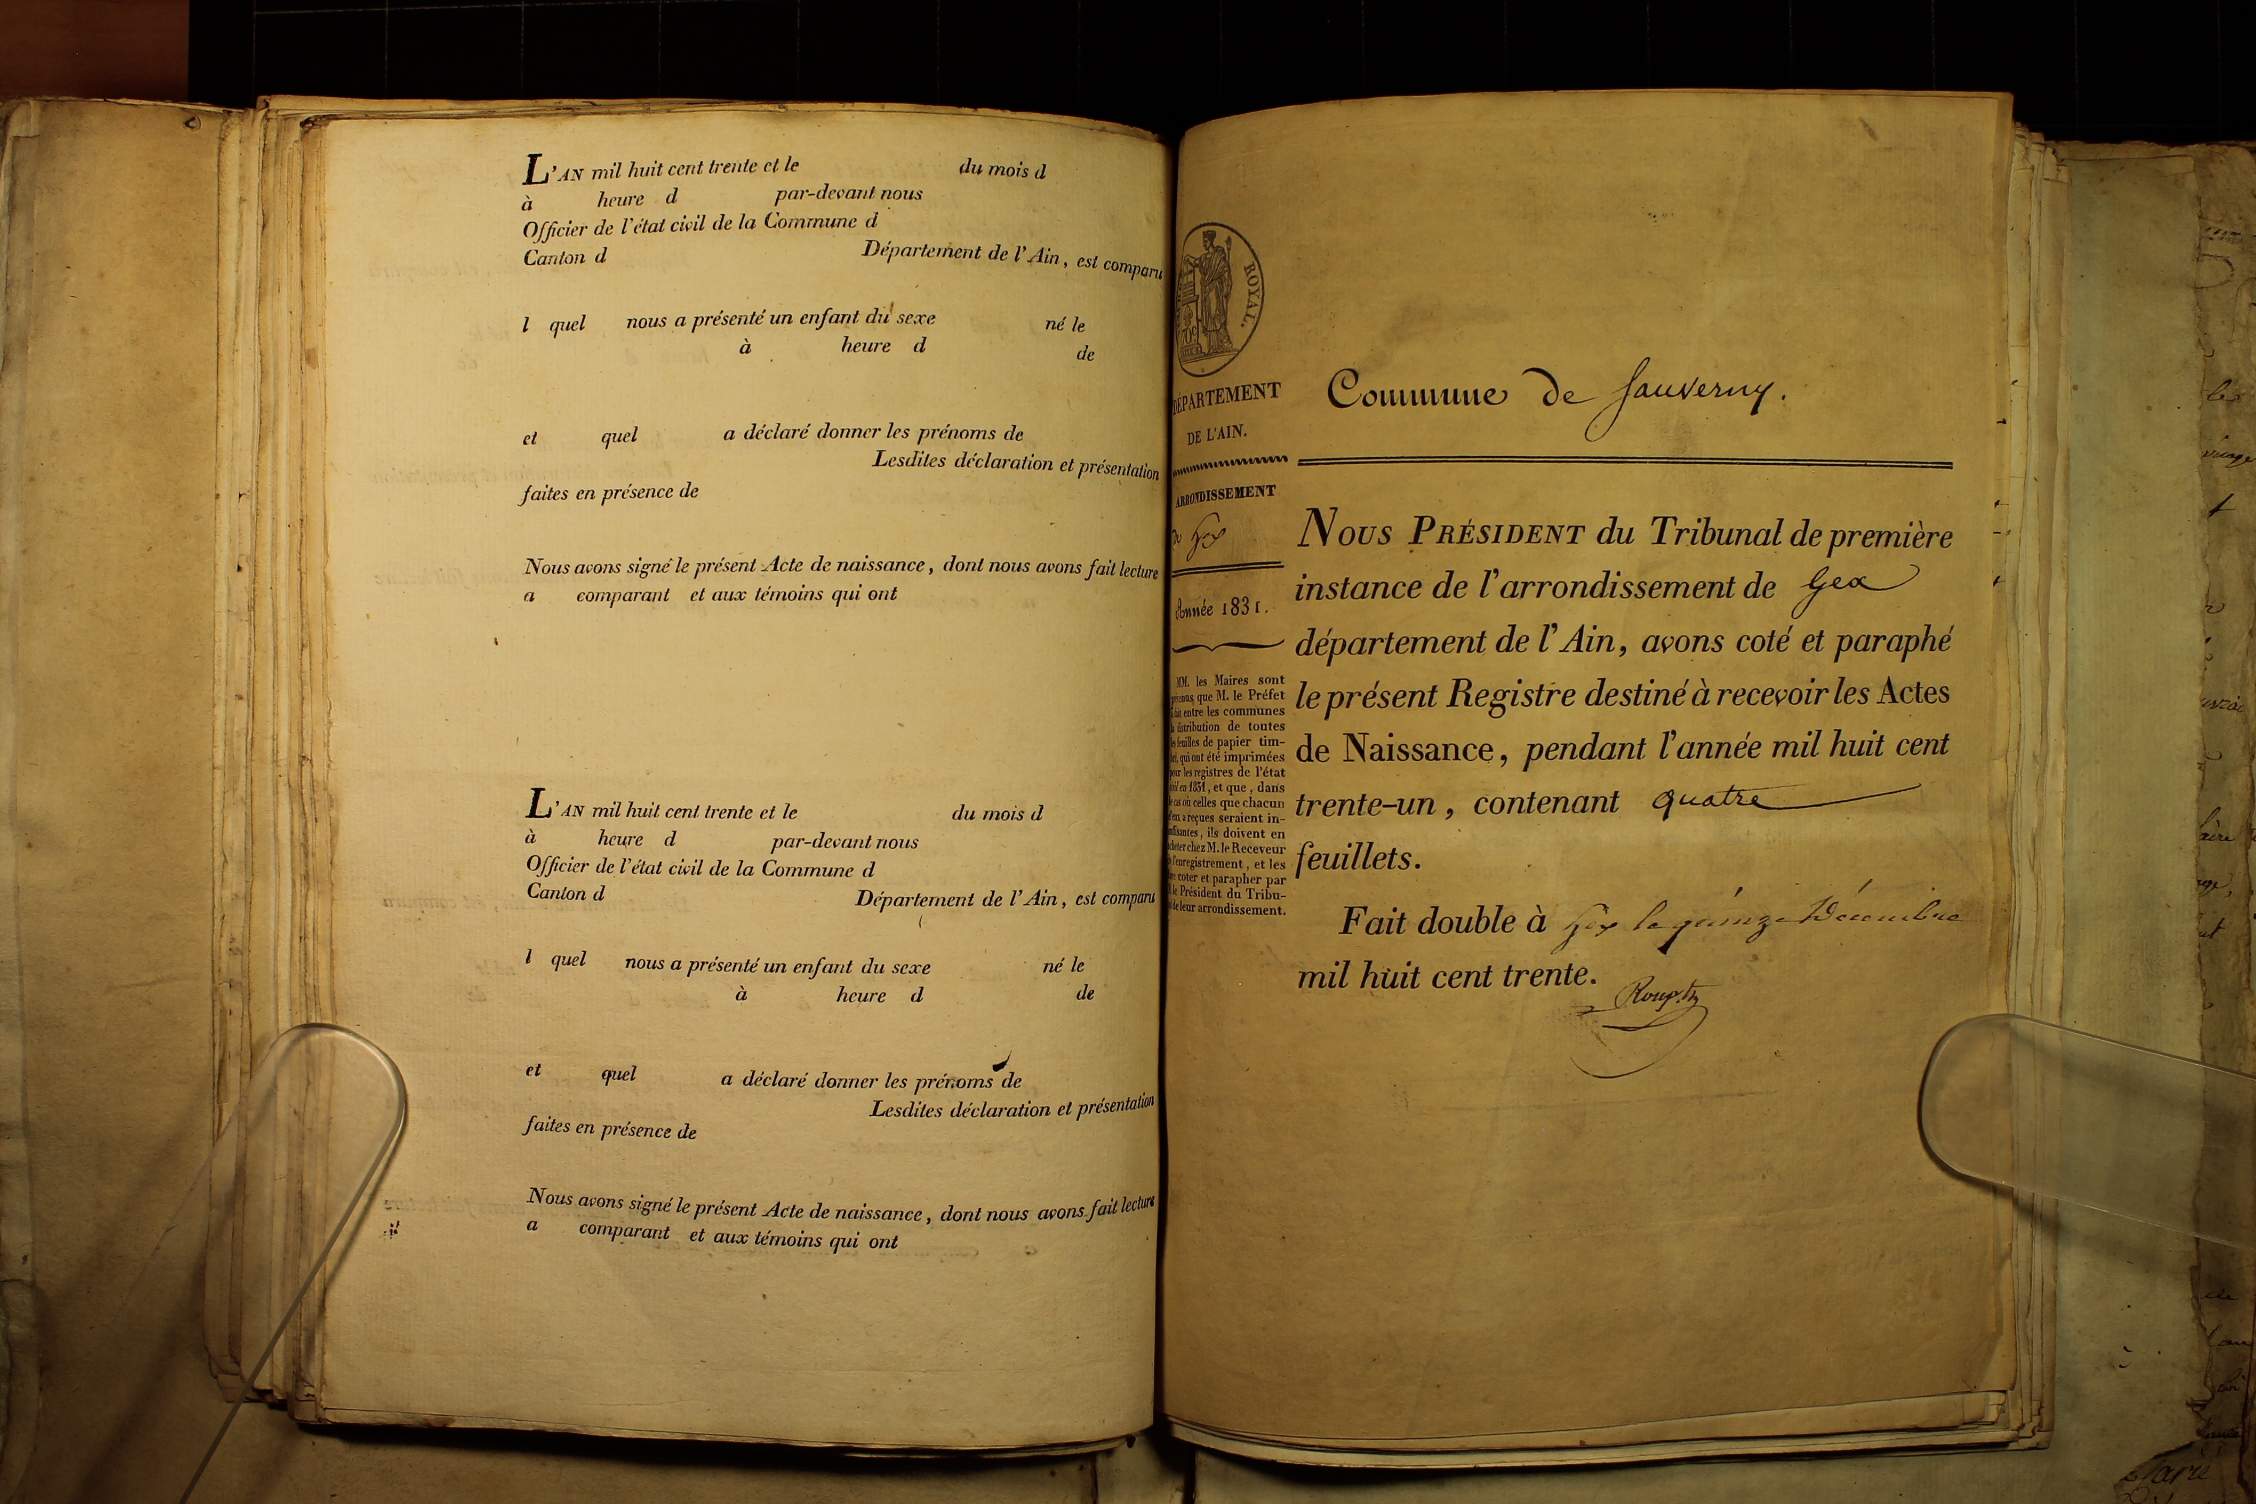 L'AN mil huit cent trente et le du mois d
à heure d par-devant nous
Officier de l'état civil de la Commune d
Canton d Département de l'Ain, est comparu
l quel nous a présenté un enfant du sexe né le
à heure d de
et quel a déclaré donner les prénoms de
Lesdites déclaration et présentation
faites en présence de
Nous avons signé le présent Acte de naissance, dont nous avons fait lecture
a comparant et aux témoins qui ont
L'AN mil huit cent trente et le du mois d
à heure d par-devant nous
Officier de l'état civil de la Commune d
Canton d Département de l'Ain, est comparu
l quel nous a présenté un enfant du sexe né le
à heure d de
et quel a déclaré donner les prénoms de
Lesdites déclaration et présentation
faites en présence de
Nous avons signé le présent Acte de naissance, dont nous avons fait lecture
a comparant et aux témoins qui ont
ROYAL.
DÉPARTEMENT
DE L'AIN.
ARRONDISSEMENT
De Gex
Année 1831.
MM. les Maires sont
prévenus que M. le Préfet
a fait entre les communes
la distribution de toutes
les feuilles de papier tim-
bré, qui ont été imprimées
pour les registres de l'état
civil en 1831, et que, dans
le cas où celles que chacun
d'eux a reçues seraient in-
suffisantes, ils doivent en
acheter chez M. le Receveur
de l'enregistrement, et les
faire coter et parapher par
M. le Président du Tribu-
nal de leur arrondissement.
Commune de Sauverny.
NOUS PRÉSIDENT du Tribunal de première
instance de l'arrondissement de Gex
département de l'Ain, avons coté et paraphé
le présent Registre destiné à recevoir les Actes
de Naissance, pendant l'année mil huit cent
trente-un, contenant quatre
feuillets.
Fait double à Gex le quinze Décembre
mil huit cent trente.